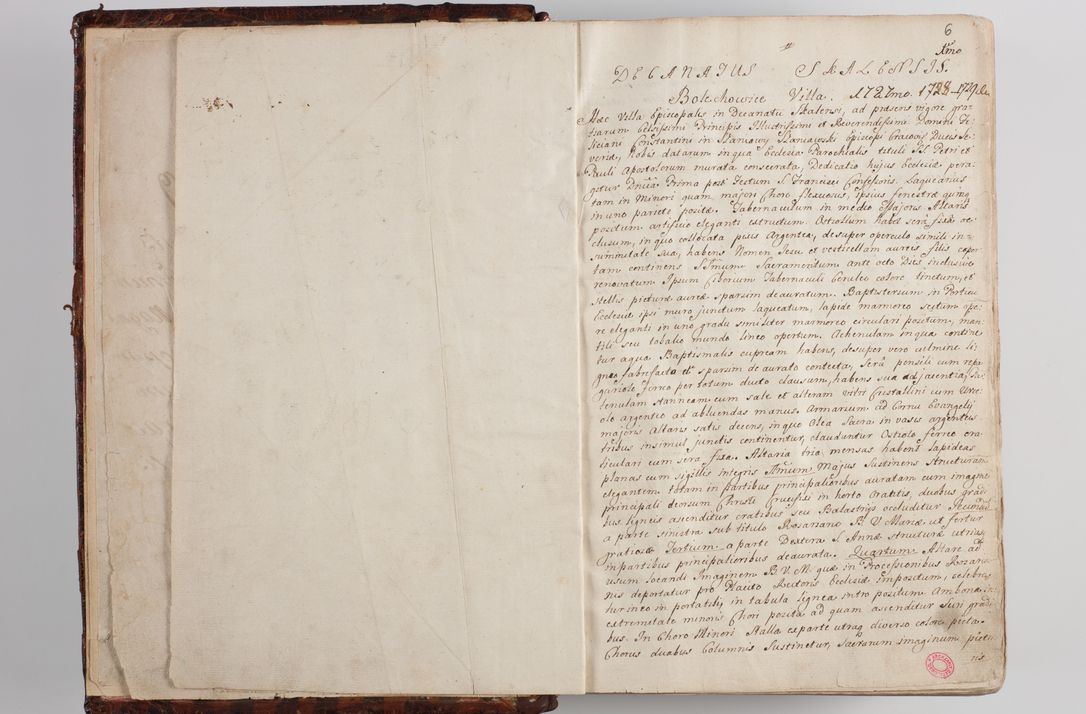 6
1mo
DECANATUS SKALENSIS.
Bolechowice Villa. 1727mo. 1728-1729.
Haec Villa Episcopalis in Decanatu Skalensi, ad praesens vigore gra-
tiarum Celsissimi Principis Illustrissimi et Reverendissimi Domini Fe-
liciani Constantini in Szaniawy Szaniawski Episcopi Cracov: Ducis Se-
veriae, Nobis datarum in qua Ecclesia Parochialis tituli SS. Petri et
Pauli Apostolorum murata consecrata, Dedicatio hujus Ecclesiae pera-
gitur Dnica Prima post Festum S. Francisci Confessoris. Laquearius
tam in Minori quam majori Choro flexuosus, ipsius fenestrae quinq
in uno pariete positae. Tabernaculum in medio Majoris Altaris
positum artificio eleganti extructum. Ostiolum habet sera fixa oc-
clusum, in quo collocata pixis Argentea, desuper operculo simili in
summitate sua, habens Nomen Jesu et vesticellam aureis filis
tam continens SSmum Sacramentum ante octo Dies inclusive
renovatum Ipsum Ciborium Tabernaculi Ceruleo colore tinctum, et
stellis pictura aurea sparsim deauratum. Baptisterium in Porticu
Ecclesiae ipsi muro junctum laqueatum, lapide marmoreo sectum ope-
re eleganti in uno gradu similiter marmoreo circulari positum, man-
tili seu tobalio mundo lineo opertum. Ahenulam in qua contine-
tur aqua Baptismalis cupream habens, desuper vero culmine li-
gneo fabrefacto et sparsim deaurato contecta, Sera pensili cum repa-
guriolo ferreo per totum ducto clausum, habens sua adjacentia, Sa-
benulam stanneam cum sale et alteram vitri Cristallini cum Urce-
olo argenteo ad abluendas manus. Armarium ad Cornu Evangelij
majoris Altaris satis decens, in quo Olea Sacra in vasis argenteis
tribus insimul junctis continentur, clauduntur Ostiolo ferreo cra-
ticulari cum sera fixa. Altaria tria mensas habent lapideas
planas cum sigillis integris Primum Majus Sustinens Structuram
elegantem totam in partibus principalioribus auratam cum imagine
principali deorsum Christi Crucifixi in horto Oratitis, duobus gradi-
bus ligneis ascenditur cratibus seu Balastrijs occluditur Secundum
a parte sinistra sub titulo Rosariano B. V. Mariae ut fertur
gratiosae Tertium a parte Dextera S. Annae structurae utrius
in partibus principalioribus deaurata. Quartum Altare ad
usum locandi Imaginem B. V. M. quae in Processionibus Rosaria-
nis deportatur pro Placito Rectoris Ecclesiae impositum, celebra-
tur in eo in portatili, in tabula lignea intro positum. Ambona in
extremitate minoris Chori posita ad quam ascenditur suri gradi-
bus. In Choro Minori Stalla ex parte utraq diverso colore picta.
Chorus duabus Columnis Sustinetur, Sacrarum imaginum pictu-
ris